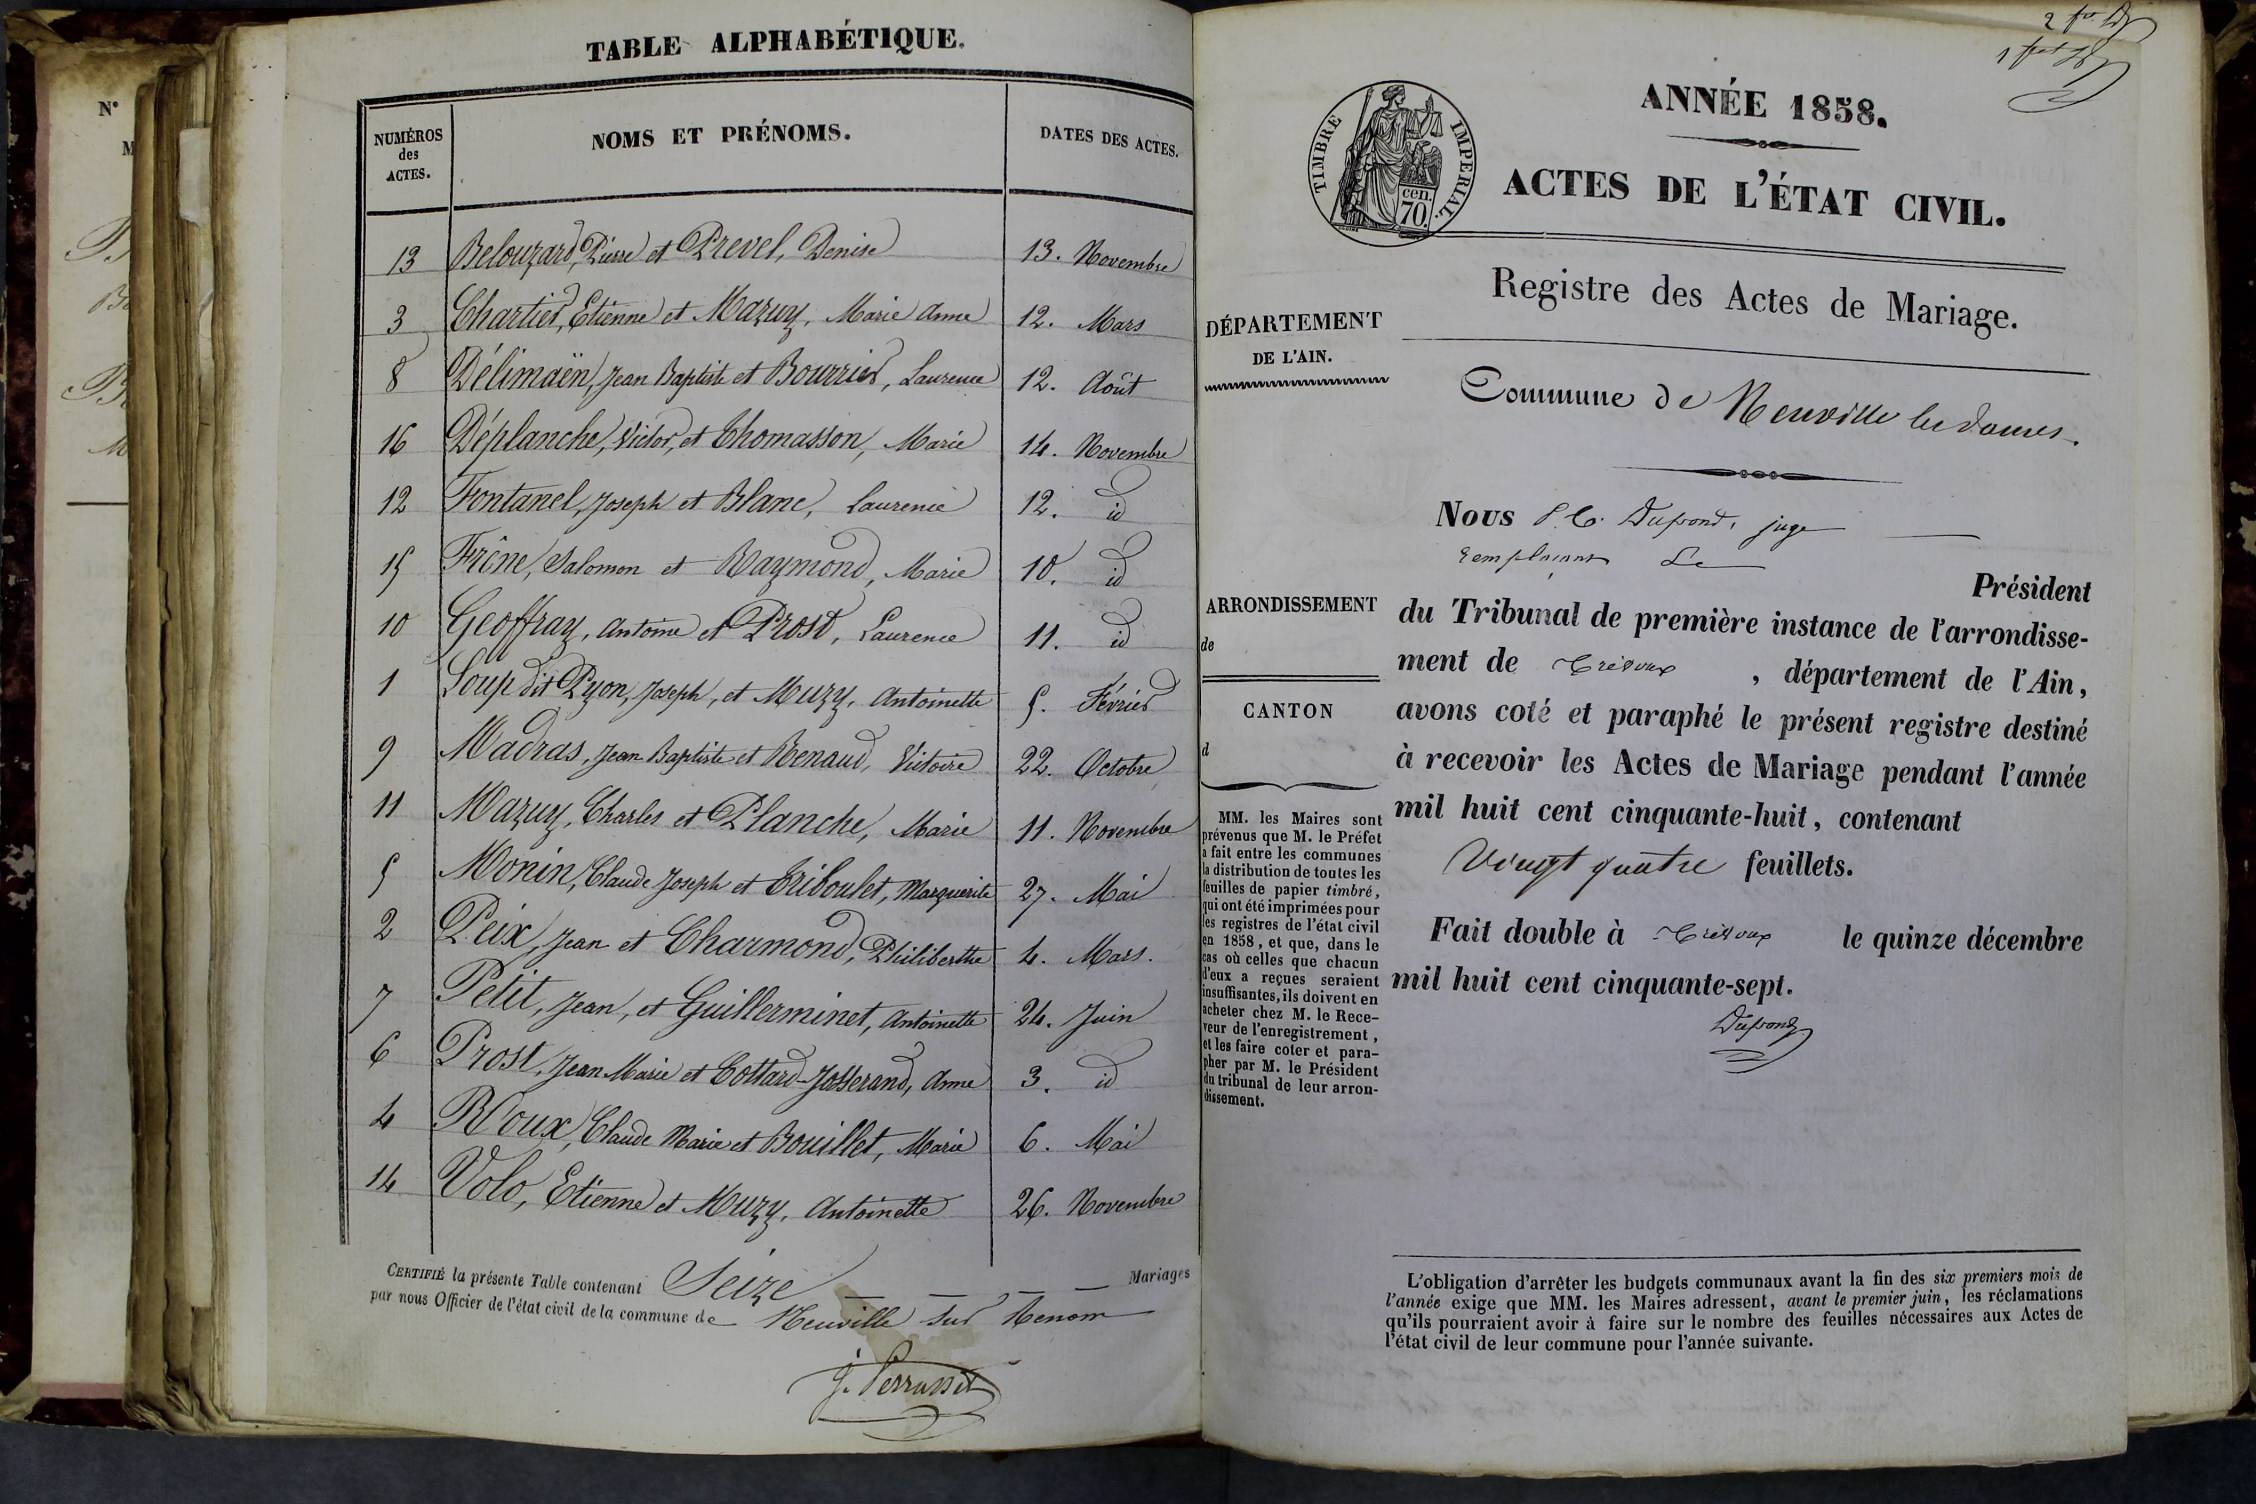 N°
M
TABLE ALPHABÉTIQUE.
NUMÉROS
des
ACTES.
NOMS ET PRÉNOMS.
DATES DES ACTES.
13 Belouzard, Pierre et Prevel, Denise 13. Novembre
3 Chartier, Etienne et Mazuy, Marie Anne 12. Mars
8 Délimaën, Jean Baptiste et Bourrier, Laurence 12. Août
16 Déplanche, Victor, et Thomasson, Marie 14. Novembre
12 Fontanel, Joseph et Blanc, Laurence 12. id
15 Frône, Salomon et Raymond, Marie 10. id
10 Geoffray, Antoine et Prost, Laurence 11. id
1 Loup dit Pyon, Joseph, et Muzy, Antoinette 5. Février
9 Madras, Jean Baptiste et Renaud, Victoire 22. Octobre
11 Mazuy, Charles et Planche, Marie 11. Novembre
5 Monin, Claude Joseph et Triboulet, Marguerite 27. Mai
2 Peix, Jean et Charmond, Philiberthe 4. Mars.
7 Petit, Jean, et Guillerminet, Antoinette 24. Juin
6 Prost, Jean Marie et Cottard-Josserand, Anne 3. id
4 Roux, Claude Marie et Bouillet, Marie 6. Mai
14 Volo, Etienne et Muzy, Antoinette 26. Novembre
CERTIFIÉ la présente Table contenant Seize Mariages
par nous Officier de l'état civil de la commune de Neuville sur Renom
J. Perrusset
TIMBRE IMPERIAL.
cen.
70.
ANNÉE 1858.
ACTES DE L'ÉTAT CIVIL.
Registre des Actes de Mariage.
DÉPARTEMENT
DE L'AIN.
Commune de Neuville les dames.
Nous P. C. Dupond, juge
remplaçant Le
Président
du Tribunal de première instance de l'arrondisse-
ment de Trévoux, département de l'Ain,
avons coté et paraphé le présent registre destiné
à recevoir les Actes de Mariage pendant l'année
mil huit cent cinquante-huit, contenant
Vingt quatre feuillets.
Fait double à Trévoux le quinze décembre
mil huit cent cinquante-sept.
Dupond
ARRONDISSEMENT
de
CANTON
d
MM. les Maires sont
prévenus que M. le Préfet
a fait entre les communes
la distribution de toutes les
feuilles de papier timbré,
qui ont été imprimées pour
les registres de l'état civil
en 1858, et que, dans le
cas où celles que chacun
d'eux a reçues seraient
insuffisantes, ils doivent en
acheter chez M. le Rece-
veur de l'enregistrement,
et les faire coter et para-
pher par M. le Président
du tribunal de leur arron-
dissement.
L'obligation d'arrêter les budgets communaux avant la fin des six premiers mois de
l'année exige que MM. les Maires adressent, avant le premier juin, les réclamations
qu'ils pourraient avoir à faire sur le nombre des feuilles nécessaires aux Actes de
l'état civil de leur commune pour l'année suivante.